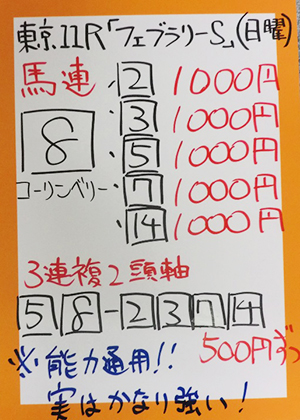 東京11R「フェブラリーS」(日曜)
馬連
2 1000円
3 1000円
8 5 1000円
コーリンベリー 7 1000円
14 1000円
3連複2頭軸
5 8 - 2 3 7 14
500円ずつ
※能力通用!!
実はかなり強い!